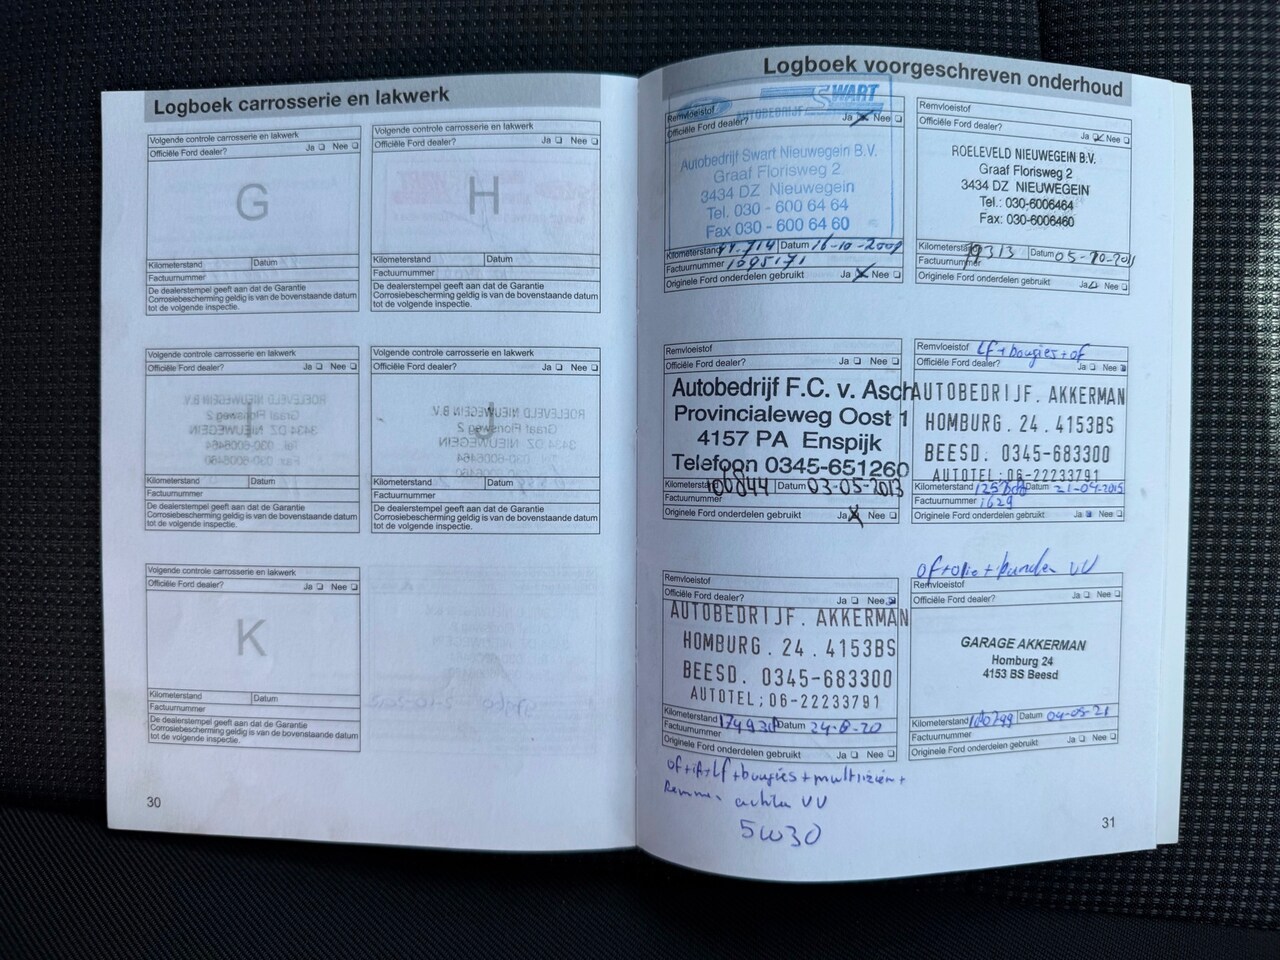 Logboek carrosserie en lakwerk
Volgende controle carrosserie en lakwerk
Officiële Ford dealer? Ja Nee
G
Kilometerstand Datum
Factuurnummer
De dealerstempel geeft aan dat de Garantie
Corrosiebescherming geldig is van de bovenstaande datum
tot de volgende inspectie.
Volgende controle carrosserie en lakwerk
Officiële Ford dealer? Ja Nee
H
Kilometerstand Datum
Factuurnummer
De dealerstempel geeft aan dat de Garantie
Corrosiebescherming geldig is van de bovenstaande datum
tot de volgende inspectie.
Volgende controle carrosserie en lakwerk
Officiële Ford dealer? Ja Nee
I
Kilometerstand Datum
Factuurnummer
De dealerstempel geeft aan dat de Garantie
Corrosiebescherming geldig is van de bovenstaande datum
tot de volgende inspectie.
Volgende controle carrosserie en lakwerk
Officiële Ford dealer? Ja Nee
J
Kilometerstand Datum
Factuurnummer
De dealerstempel geeft aan dat de Garantie
Corrosiebescherming geldig is van de bovenstaande datum
tot de volgende inspectie.
Volgende controle carrosserie en lakwerk
Officiële Ford dealer? Ja Nee
K
Kilometerstand Datum
Factuurnummer
De dealerstempel geeft aan dat de Garantie
Corrosiebescherming geldig is van de bovenstaande datum
tot de volgende inspectie.
30
Logboek voorgeschreven onderhoud
Remvloeistof
SWART
AUTOBEDRIJF
Officiële Ford dealer? Ja Nee
Autobedrijf Swart Nieuwegein B.V.
Graaf Florisweg 2
3434 DZ Nieuwegein
Tel. 030 - 600 64 64
Fax 030 - 600 64 60
Kilometerstand Datum 16-10-2009
Factuurnummer 1695171
Originele Ford onderdelen gebruikt Ja Nee
Remvloeistof
Officiële Ford dealer? Ja Nee
ROELEVELD NIEUWEGEIN B.V.
Graaf Florisweg 2
3434 DZ NIEUWEGEIN
Tel.: 030-6006464
Fax: 030-6006460
Kilometerstand 79313 Datum
Factuurnummer
Originele Ford onderdelen gebruikt Ja Nee
Remvloeistof
Officiële Ford dealer? Ja Nee
Autobedrijf F.C. v. Asch
Provincialeweg Oost 1
4157 PA Enspijk
Telefoon 0345-651260
Kilometerstand 100844 Datum 03-05-2013
Factuurnummer
Originele Ford onderdelen gebruikt Ja Nee
Remvloeistof Lf + bougies + of
Officiële Ford dealer? Ja Nee
AUTOBEDRIJF. AKKERMAN
HOMBURG. 24. 4153BS
BEESD. 0345-683300
AUTOTEL: 06-22233791
Kilometerstand Datum 21-04-2015
Factuurnummer 1629
Originele Ford onderdelen gebruikt Ja Nee
Remvloeistof
Officiële Ford dealer? Ja Nee
AUTOBEDRIJF. AKKERMAN
HOMBURG. 24. 4153BS
BEESD. 0345-683300
AUTOTEL; 06-22233791
Kilometerstand Datum 24-8-20
Factuurnummer
Originele Ford onderdelen gebruikt Ja Nee
of + if + Lf + bougies + multiriem +
Remmen achter VV
5W30
of + olie + banden VV
Remvloeistof
Officiële Ford dealer? Ja Nee
GARAGE AKKERMAN
Homburg 24
4153 BS Beesd
Kilometerstand Datum 04-05-21
Factuurnummer
Originele Ford onderdelen gebruikt Ja Nee
31